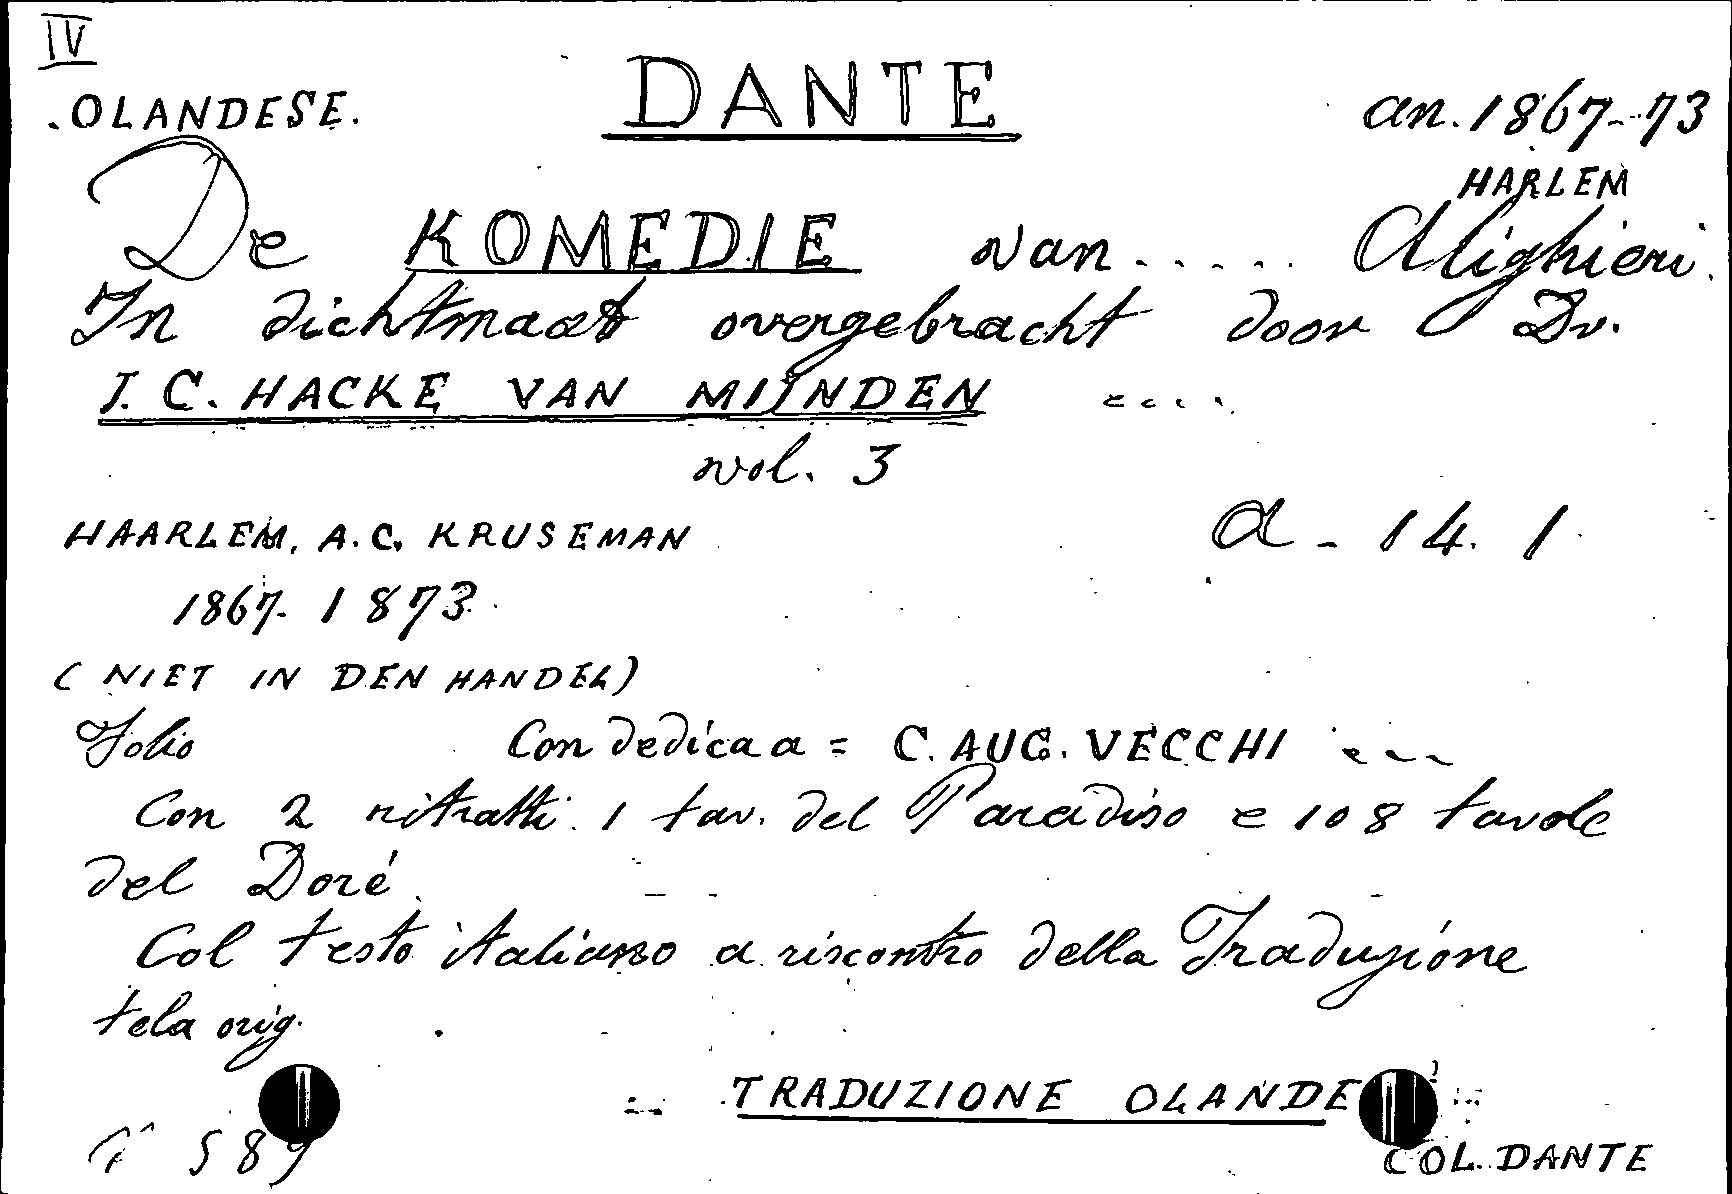 IV
.OLANDESE.
DANTE
an. 1867-73
HARLEM
De KOMEDIE van ..... Alighieri.
In dichtmaat overgebracht door Dr.
J. C. HACKE VAN MIJNDEN ....
vol. 3
HAARLEM, A. C. KRUSEMAN
a - 14. 1
1867-1873
(NIET IN DEN HANDEL)
Folio Con dedica a = C. AUG. VECCHI ...
Con 2 ritratti. 1 tav. del Paradiso e 108 tavole
del Doré
Col testo italiano a riscontro della Traduzione
tela orig.
TRADUZIONE OLANDE
589
COL. DANTE